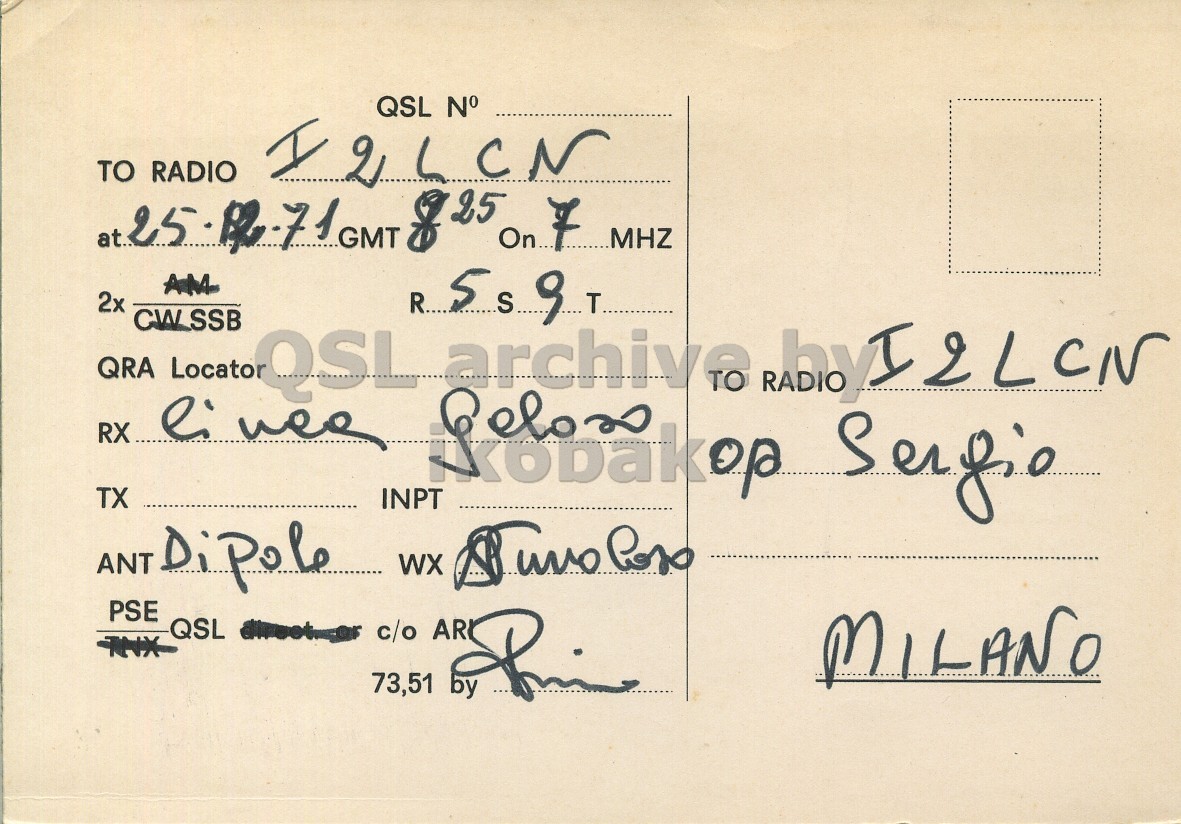 QSL Nº
TO RADIO I2LCN
at 25.12.71 GMT 8 25 On 7 MHZ
2x AM
CW SSB R 5 S 9 T
QRA Locator
RX linea Geloso
TX INPT
ANT Dipole WX
PSE
TNX QSL direct or c/o ARI
73,51 by
TO RADIO I2LCN
op Sergio
MILANO
QSL archive by
ik6bak